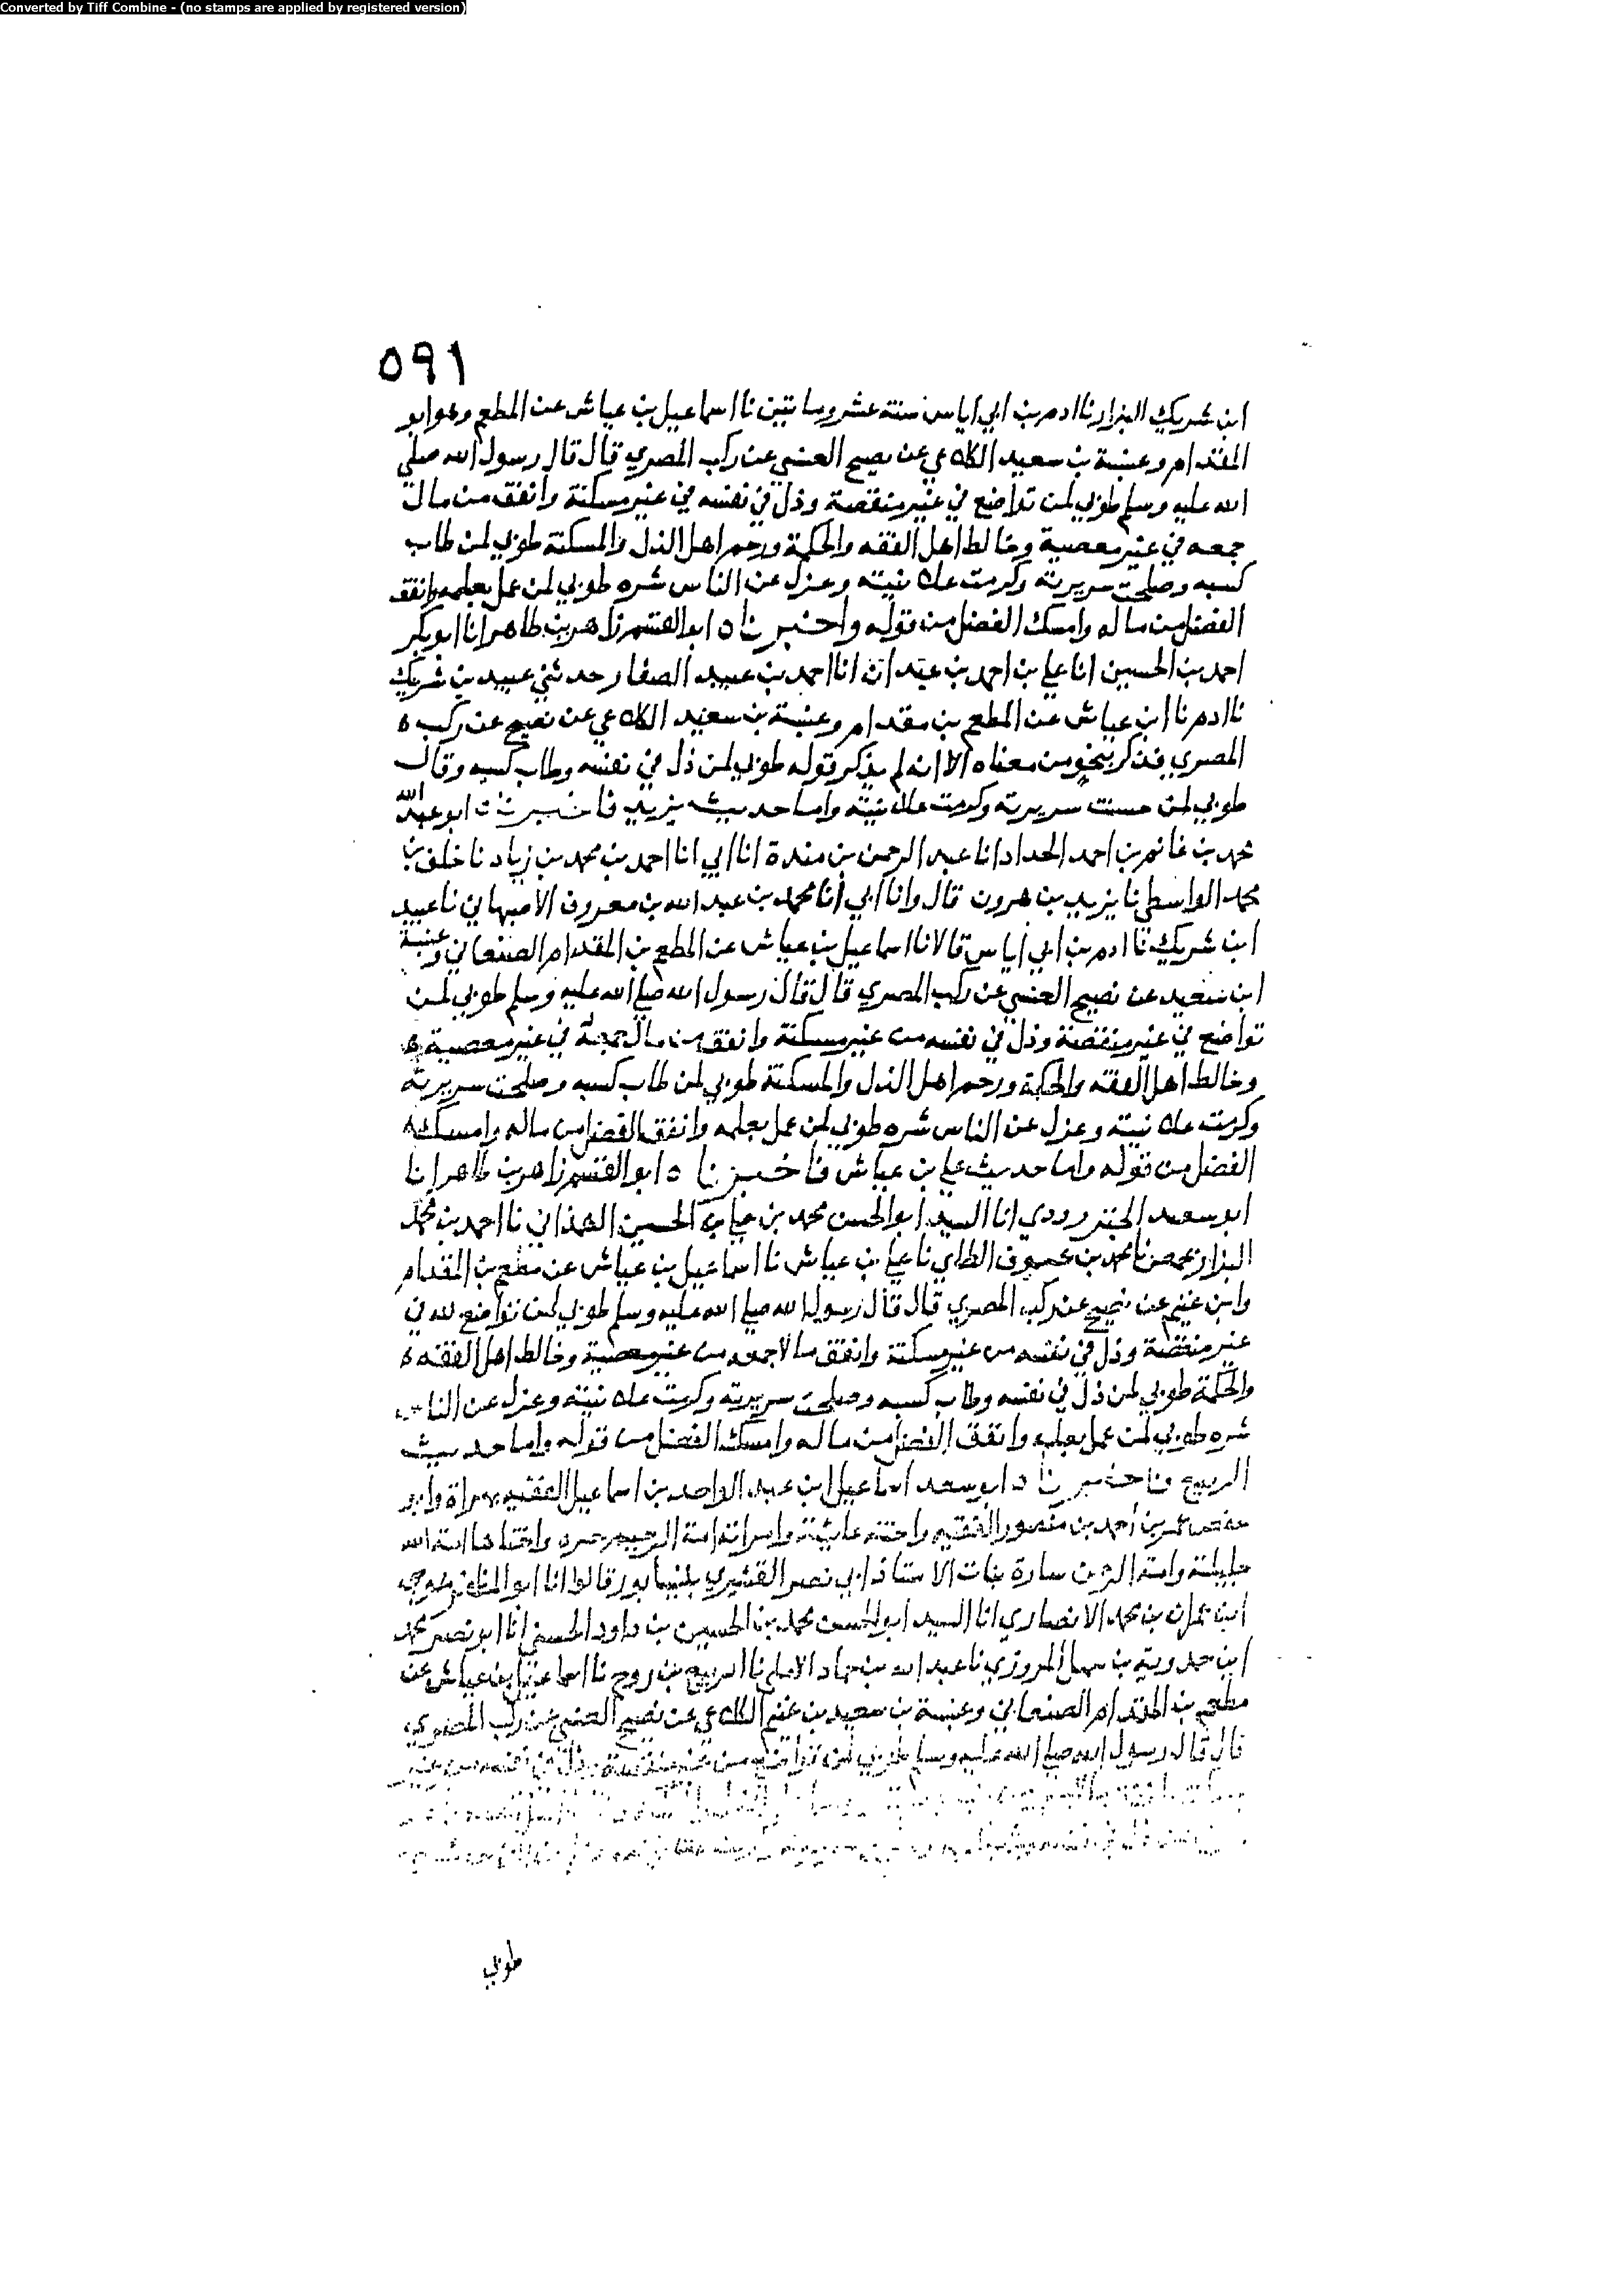 Converted by Tiff Combine - (no stamps are applied by registered version)
٥٩١
ابن شريك البزار نا ادم بن ابي اياس سنة عشر ومايتين نا اسماعيل بن عياش عن المطعم وهو ابو
المقدام وعنبسة بن سعيد الكلاعي عن نصيح العنسي عن ركب المصري قال قال رسول الله صلى
الله عليه وسلم طوبي لمن تواضع في غير منقصة وذل في نفسه في غير مسكنة وانفق من مال
جمعه في غير معصية وخالط اهل الفقه والحكمة ورحم اهل الذل والمسكنة طوبي لمن طاب
كسبه وصلحت سريرته وكرمت علانيته وعزل عن الناس شره طوبي لمن عمل بعلمه وانفق
الفضل من ماله وامسك الفضل من قوله واخبرنا ابو القسم زاهر بن طاهر انا ابو بكر
احمد بن الحسين انا علي بن احمد بن عبدان انا احمد بن عبيد الصفار حدثني عبيد بن شريك
نا ادم نا ابن عياش عن المطعم بن مقدام وعنبسة بن سعيد الكلاعي عن نصيح عن ركب
المصري فذكر بنحو من معناه الا انه لم يذكر قوله طوبي لمن ذل في نفسه وطاب كسبه وقال
طوبي لمن حسنت سريرته وكرمت علانيته واما حديث يزيد فاخبرنا ابو عبد الله
محمد بن غانم بن احمد الحداد انا عبد الرحمن بن مندة انا ابي انا احمد بن محمد بن زياد نا خلف بن
محمد الواسطي نا يزيد بن هرون قال وانا ابي انا محمد بن عبد الله بن معروف الاصبهاني نا عبيد
ابن شريك نا ادم بن ابي اياس قالا نا اسماعيل بن عياش عن المطعم بن المقدام الصنعاني وعنبسة
ابن سعيد عن نصيح العنسي عن ركب المصري قال قال رسول الله صلي الله عليه وسلم طوبي لمن
تواضع في غير منقصة وذل في نفسه من غير مسكنة وانفق من مال جمعه في غير معصية
وخالط اهل الفقه والحكمة ورحم اهل الذل والمسكنة طوبي لمن طاب كسبه وصلحت سريرته
وكرمت علانيته وعزل عن الناس شره طوبي لمن عمل بعلمه وانفق الفضل من ماله وامسك
الفضل من قوله واما حديث علي بن عياش فاخبرنا ابو القسم زاهر بن طاهر انا
ابو سعيد الجنزرودي انا السيد ابو الحسن محمد بن علي بن الحسين الهمذاني نا احمد بن محمد
البزاز بحمص نا محمد بن عوف الطاي نا علي بن عياش نا اسماعيل بن عياش عن مطعم بن المقدام
وابن غنيم عن نصيح عن ركب المصري قال قال رسول الله صلي الله عليه وسلم طوبي لمن تواضع لله في
غير منقصة وذل في نفسه من غير مسكنة وانفق مالا جمعه من غير معصية وخالط اهل الفقه
والحكمة طوبي لمن ذل في نفسه وطاب كسبه وصلحت سريرته وكرمت علانيته وعزل عن الناس
شره طوبي لمن عمل بعلمه وانفق الفضل من ماله وامسك الفضل من قوله واما حديث
الربيع فاخبرنا ابو سعد اسماعيل ابن عبد الواحد بن اسماعيل الفقيه بهراة وابو
حفص عمر بن احمد بن منصور الفقيه واخته عائشة وامراته امة الرحيم حرة واختاها امة الله
جليلة وامة الرحمن سارة بنات الاستاذ ابي نصر القشيري بنيسابور قالوا انا ابو المظفر موسى
ابن عمران بن محمد الانصاري انا السيد ابو الحسن محمد بن الحسين بن داود الحسني انا ابو نصر محمد
ابن حمدوية بن سهل المروزي نا عبد الله بن حماد الاملي نا الربيع بن روح نا اسماعيل بن عياش عن
مطعم بن المقدام الصنعاني وعنبسة بن سعيد بن غنيم الكلاعي عن نصيح العنسي عن ركب المصري
قال قال رسول الله صلي الله عليه وسلم طوبي لمن تواضع من غير منقصة وذل في نفسه من غير
طوبي